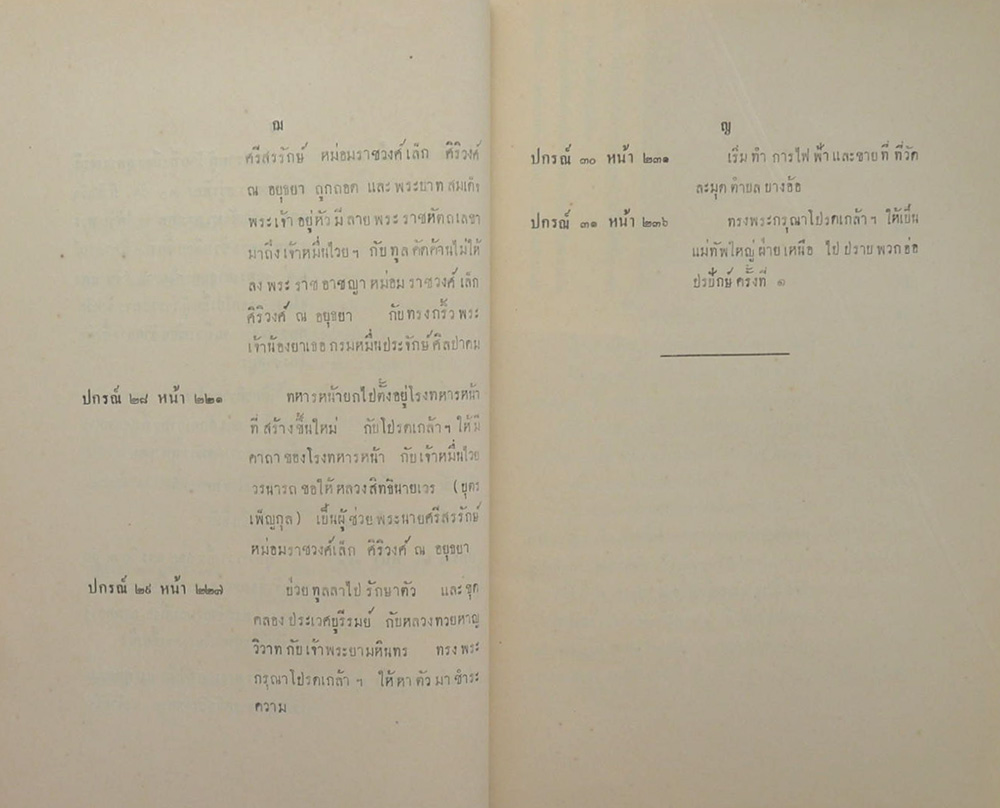 ฌ
ศรีสรรักษ์ หม่อมราชวงศ์เล็ก ศิริวงศ์
ณ อยุธยา ถูกถอด และพระบาทสมเด็จ
พระเจ้าอยู่หัวมีลายพระราชหัตถเลขา
มาถึงเจ้าหมื่นไวยฯ กับทูลคัดค้านไม่ให้
ลงพระราชอาชญาหม่อมราชวงศ์เล็ก
ศิริวงศ์ ณ อยุธยา กับทรงกริ้วพระ
เจ้าน้องยาเธอกรมหมื่นประจักษ์ศิลปาคม
ปกรณ์ ๒๘ หน้า ๒๒๑ ทหารหน้ายกไปตั้งอยู่โรงทหารหน้า
ที่สร้างขึ้นใหม่ กับโปรดเกล้าฯ ให้มี
คาถาของโรงทหารหน้า กับเจ้าหมื่นไวย
วรนารถขอให้หลวงสิทธินายเวร (บุตร
เพ็ญกุล) เป็นผู้ช่วยพระนายศรีสรรักษ์
หม่อมราชวงศ์เล็ก ศิริวงศ์ ณ อยุธยา
ปกรณ์ ๒๙ หน้า ๒๒๗ ป่วยทูลลาไปรักษาตัว และขุด
คลองประเวศบุรีรมย์ กับหลวงทวยหาญ
วิวาทกับเจ้าพระยามหินทร ทรงพระ
กรุณาโปรดเกล้าฯ ให้หาตัวมาชำระ
ความ
ญ
ปกรณ์ ๓๐ หน้า ๒๓๑ เริ่มทำการไฟฟ้าและขายที่ ที่วัด
ละมุดตำบลบางอ้อ
ปกรณ์ ๓๑ หน้า ๒๓๖ ทรงพระกรุณาโปรดเกล้าฯ ให้เป็น
แม่ทัพใหญ่ฝ่ายเหนือ ไปปราบพวกฮ่อ
ปรปักษ์ครั้งที่ ๑